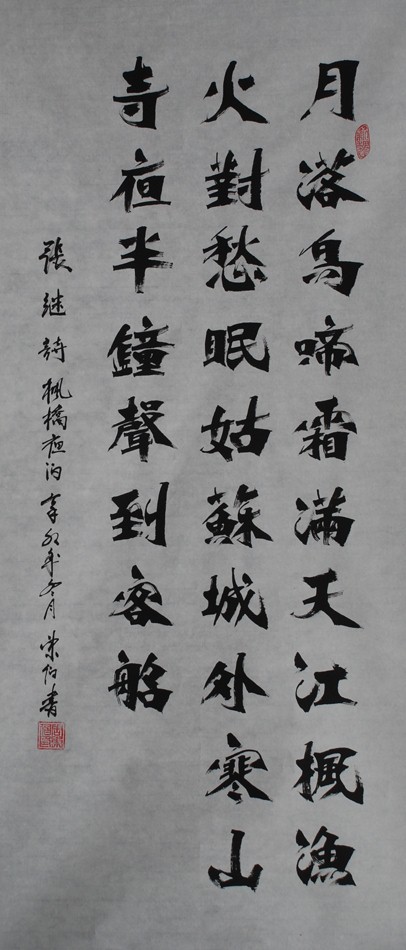 月落烏啼霜滿天江楓漁
火對愁眠姑蘇城外寒山
寺夜半鐘聲到客船
張继詩楓橋夜泊辛卯年冬月